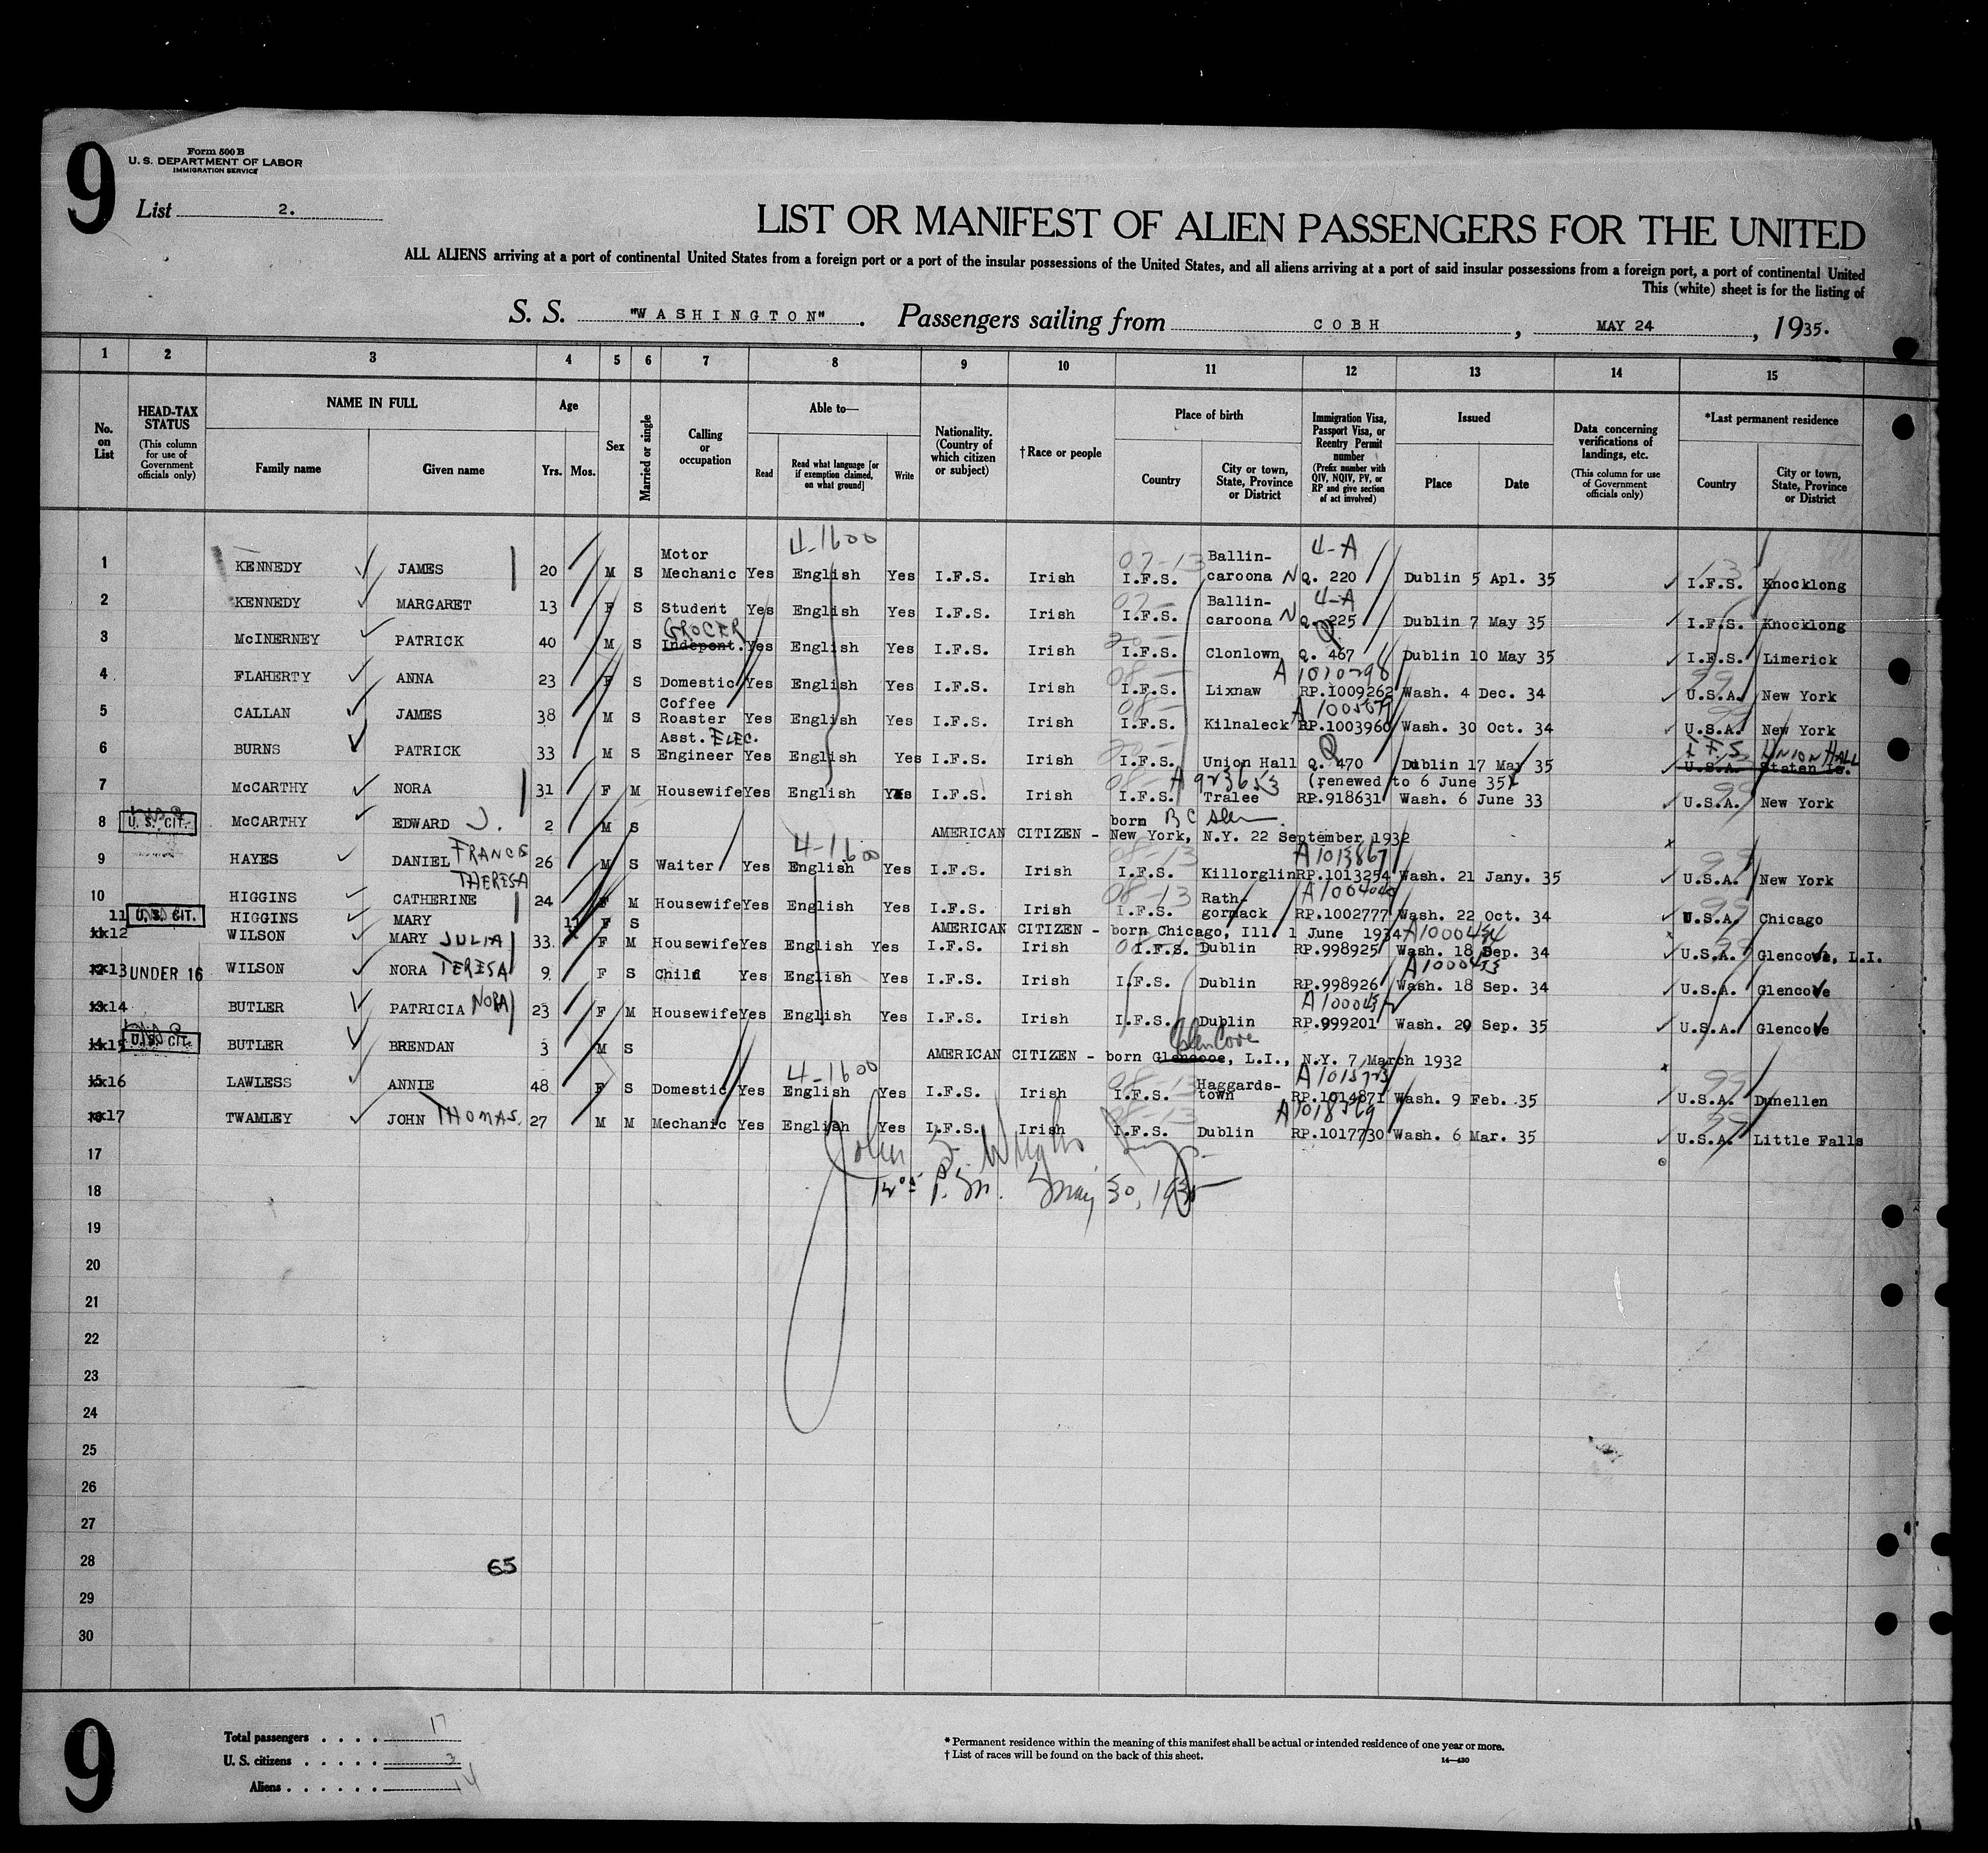 9
Form 500 B
U. S. DEPARTMENT OF LABOR
IMMIGRATION SERVICE
List 2.
LIST OR MANIFEST OF ALIEN PASSENGERS FOR THE UNITED
ALL ALIENS arriving at a port of continental United States from a foreign port or a port of the insular possessions of the United States, and all aliens arriving at a port of said insular possessions from a foreign port, a port of continental United
This (white) sheet is for the listing of
S. S. "WASHINGTON". Passengers sailing from COBH, MAY 24, 1935.
1 2 3 4 5 6 7 8 9 10 11 12 13 14 15
No. on List
HEAD-TAX STATUS (This column for use of Government officials only)
NAME IN FULL Family name Given name
Age Yrs. Mos.
Sex
Married or single
Calling or occupation
Able to— Read Read what language [or if exemption claimed, on what ground] Write
Nationality. (Country of which citizen or subject)
†Race or people
Place of birth Country City or town, State, Province or District
Immigration Visa, Passport Visa, or Reentry Permit number (Prefix number with QIV, NQIV, PV, or RP and give section of act involved)
Issued Place Date
Data concerning verifications of landings, etc. (This column for use of Government officials only)
*Last permanent residence Country City or town, State, Province or District
4-1600 4-A
1 KENNEDY JAMES 20 M S Motor Mechanic Yes English Yes I.F.S. Irish 07-13 I.F.S. Ballin-caroona N Q. 220 Dublin 5 Apl. 35 I.F.S. Knocklong
4-A
2 KENNEDY MARGARET 13 F S Student Yes English Yes I.F.S. Irish I.F.S. Ballin-caroona N Q. 225 Dublin 7 May 35 I.F.S. Knocklong
3 McINERNEY PATRICK 40 M S GROCER Indepent. Yes English Yes I.F.S. Irish I.F.S. Clonlown Q. 467 Dublin 10 May 35 I.F.S. Limerick
A 1010298
4 FLAHERTY ANNA 23 F S Domestic Yes English Yes I.F.S. Irish I.F.S. Lixnaw RP.1009262 Wash. 4 Dec. 34 U.S.A. New York
5 CALLAN JAMES 38 M S Coffee Roaster Yes English Yes I.F.S. Irish I.F.S. Kilnaleck RP.1003960 Wash. 30 Oct. 34 U.S.A. New York
6 BURNS PATRICK 33 M S Asst. ELEC. Engineer Yes English Yes I.F.S. Irish I.F.S. Union Hall Q. 470 Dublin 17 May 35 I.F.S. UNION HALL U.S.A. Staten Is.
A 923653 (renewed to 6 June 35)
7 McCARTHY NORA 31 F M Housewife Yes English Yes I.F.S. Irish I.F.S. Tralee RP.918631 Wash. 6 June 33 U.S.A. New York
8 U.S. CIT. McCARTHY EDWARD J. 2 M S AMERICAN CITIZEN - born New York, N.Y. 22 September 1932
4-1600 A1013867
9 HAYES DANIEL FRANCIS 26 M S Waiter Yes English Yes I.F.S. Irish 08-13 I.F.S. Killorglin RP.1013254 Wash. 21 Jany. 35 U.S.A. New York
10 HIGGINS CATHERINE THERESA 24 F M Housewife Yes English Yes I.F.S. Irish 08-13 I.F.S. Rath-gormack RP.1002777 Wash. 22 Oct. 34 U.S.A. Chicago
11 U.S. CIT. HIGGINS MARY 11 F S AMERICAN CITIZEN - born Chicago, Ill. 1 June 1934
12 WILSON MARY JULIA 33 F M Housewife Yes English Yes I.F.S. Irish I.F.S. Dublin RP.998925 Wash. 18 Sep. 34 U.S.A. Glencove, L.I.
A1000453
13 UNDER 16 WILSON NORA TERESA 9 F S Child Yes English Yes I.F.S. Irish I.F.S. Dublin RP.998926 Wash. 18 Sep. 34 U.S.A. Glencove
14 BUTLER PATRICIA NORA 23 F M Housewife Yes English Yes I.F.S. Irish I.F.S. Dublin RP.999201 Wash. 20 Sep. 35 U.S.A. Glencove
15 U.S. CIT. BUTLER BRENDAN 3 M S AMERICAN CITIZEN - born Glencooe, Glen Cove L.I., N.Y. 7 March 1932
4-1600 A1015723
16 LAWLESS ANNIE 48 F S Domestic Yes English Yes I.F.S. Irish 08-13 I.F.S. Haggards-town RP.1014871 Wash. 9 Feb. 35 U.S.A. Dunellen
A1018569
17 TWAMLEY JOHN THOMAS. 27 M M Mechanic Yes English Yes I.F.S. Irish I.F.S. Dublin RP.1017730 Wash. 6 Mar. 35 U.S.A. Little Falls
17
18 P.M. May 30, 1935
19
20
21
22
23
24
25
26
27
28 65
29
30
9
Total passengers 17
U. S. citizens 3
Aliens 14
* Permanent residence within the meaning of this manifest shall be actual or intended residence of one year or more.
† List of races will be found on the back of this sheet.
14—430